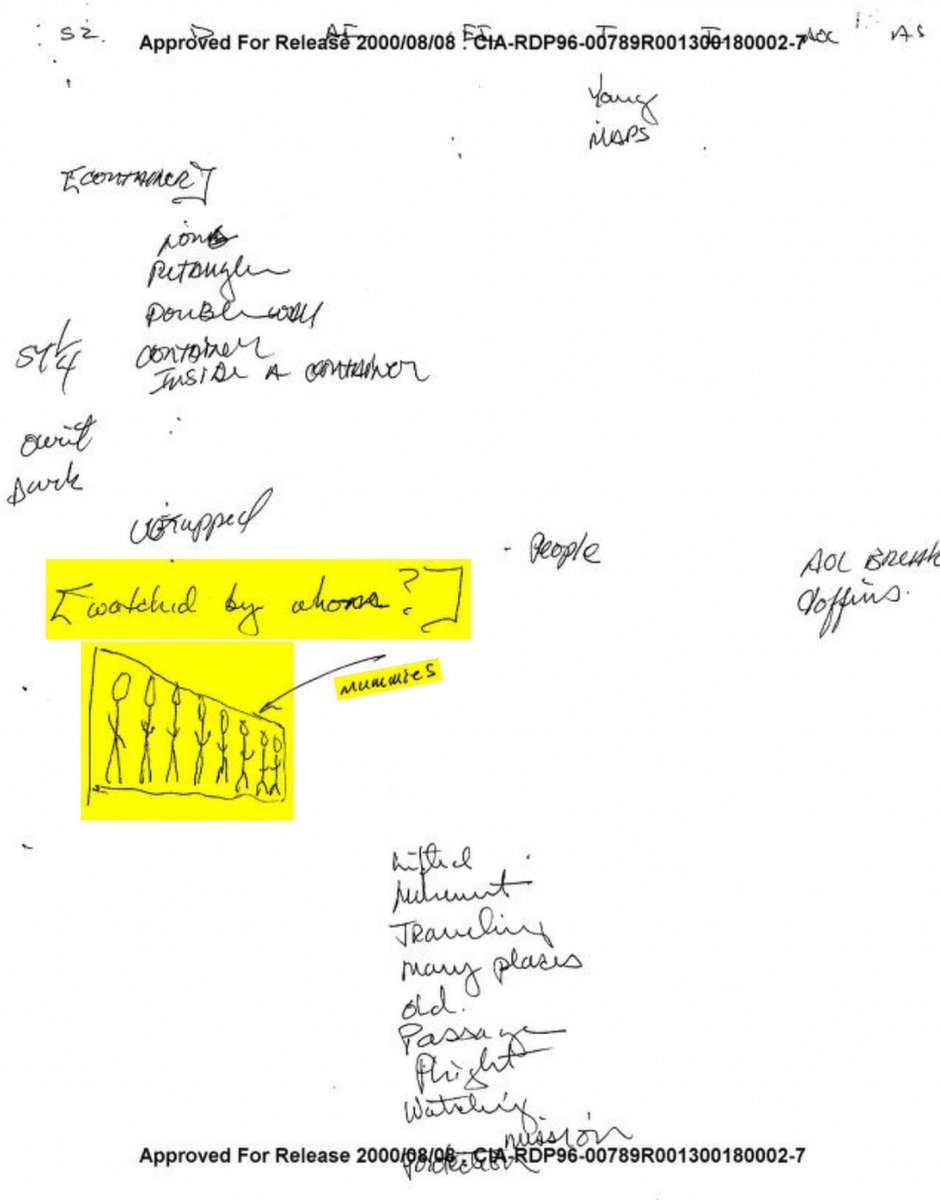 S2 D AI EI T I AOL AS
Approved For Release 2000/08/08 : CIA-RDP96-00789R001300180002-7
Young
MAPS
[CONTAINER]
long
RETangler
DOUBLE wall
S4 1/4
CONTAINER
INSIDE A CONTAINER
quiet
Dark
wrapped
- People
AOL BREAK
Coffins.
[watched by whom?]
MUMMIES
Lifted
Traveling
many places
old.
Passage
Flight
Watching
mission
protection
Approved For Release 2000/08/08 : CIA-RDP96-00789R001300180002-7